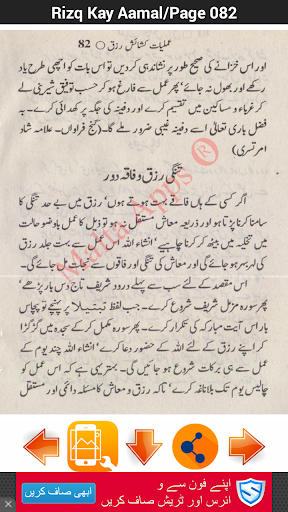 Rizq Kay Aamal/Page 082
عملیات کشائش رزق ○ 82
اور اس خزانے کی صحیح طور پر نشاندہی کر دیں تو اس بات کو اچھی طرح یاد
رکھے اور بھول نہ جائے۔ دفینے سے فارغ ہو کر حسب توفیق شیرینی لے
کر غرباء و مساکین میں تقسیم کرے اور دفینہ کی جگہ پر کھدائی کرے۔ بہ
فضل باری تعالیٰ اسے دفینہ غیبی ضرور ملے گا۔ (گنج فراواں۔ علامہ شاد
امرتسری)
تنگی رزق و فاقہ دور
اگر کسی کے ہاں فاقے بہت ہوتے ہوں‘ رزق میں بے حد تنگی کا
سامنا کرنا پڑتا ہو اور ذریعہ معاش مستقل نہ ہو تو ذیل کا عمل باوضو حالت
میں تخلیہ میں بیٹھ کر کرنا چاہیے‘ انشاء اللہ اس عمل سے بہت جلد رزق
کی لہر بہر ہو جائے گی اور معاش کی تنگی اور فاقوں سے نجات مل جائے گی۔
اس مقصد کے لئے سب سے پہلے درود شریف تاج دس بار پڑھے‘
پھر سورہ مزمل شریف شروع کرے۔ جب لفظ تبتیلا پر پہنچے تو پچاس
بار اس آیت مبارکہ کی تکرار کرے۔ پھر سورہ مکمل کر کے سجدہ میں گڑگڑا
کر اپنے رزق کے لئے اللہ کے حضور دعا کرے‘ انشاء اللہ چند یوم کے
عمل سے ہی برکات شروع ہو جائیں گی۔ بہتر یہی ہے کہ اس عمل کو
چالیس یوم تک بلاناغہ کرے‘ تاکہ رزق و معاش کا مسئلہ دائمی اور مستقل
Maula Apps ®
اپنے فون سے و
ائرس اور ٹریش صاف کریں
ابھی صاف کریں